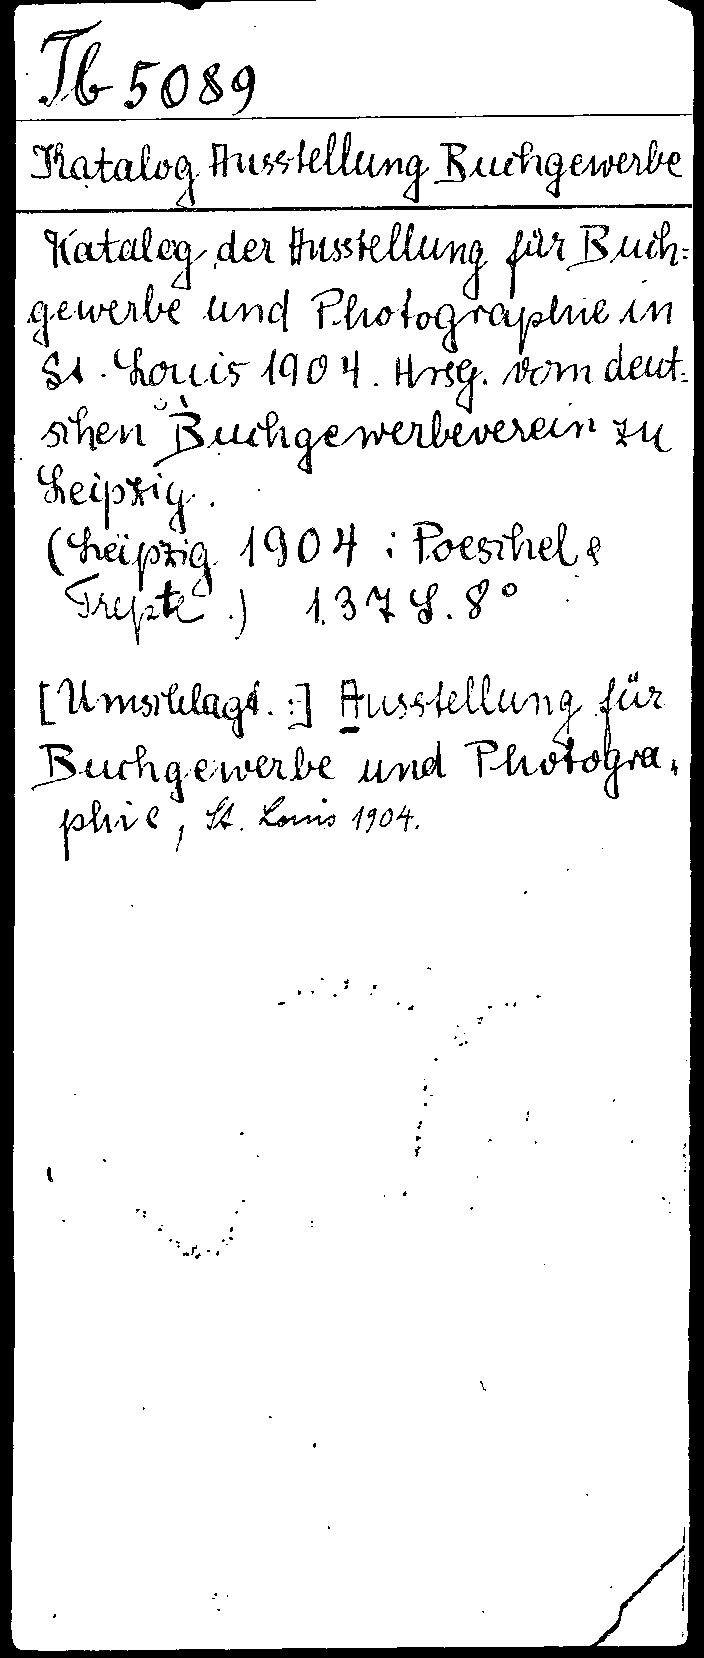 Tb 5089
Katalog Ausstellung Buchgewerbe
Katalog der Ausstellung für Buch=
gewerbe und Photographie in
St. Louis 1904. Hrsg. vom deut=
schen Buchgewerbeverein zu
Leipzig.
(Leipzig 1904: Poeschel &
Trepte.) 137 S. 8°
[Umschlagt.:] Ausstellung für
Buchgewerbe und Photogra=
phie, St. Louis 1904.